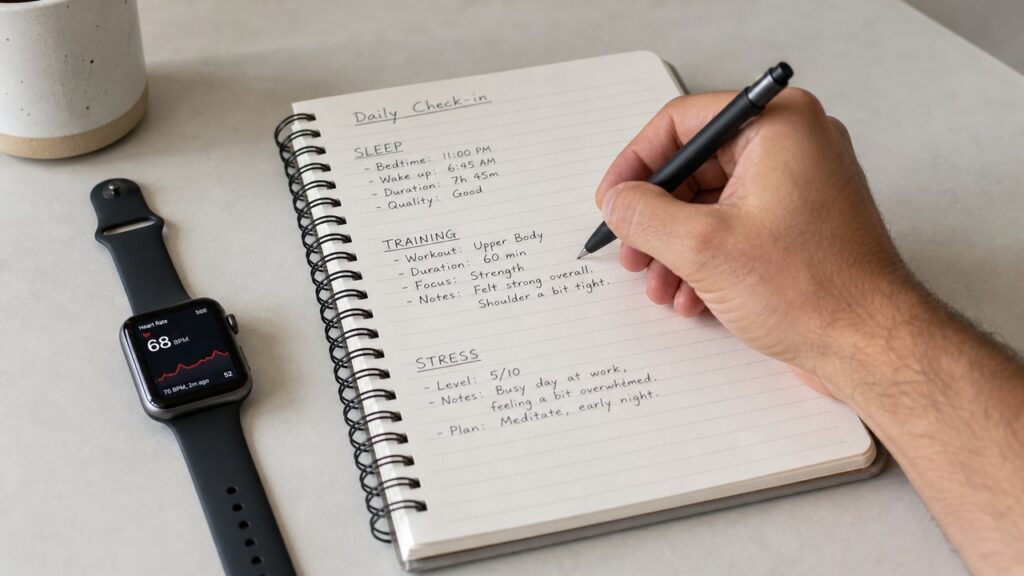 Daily Check-in
SLEEP
- Bedtime: 11:00 PM
- Wake up: 6:45 AM
- Duration: 7h 45m
- Quality: Good
TRAINING
- Workout: Upper Body
- Duration: 60 min
- Focus: Strength
- Notes: Felt strong overall.
Shoulder a bit tight.
STRESS
- Level: 5/10
- Notes: Busy day at work,
feeling a bit overwhelmed.
- Plan: Meditate, early night.
Heart Rate
68 BPM
75 BPM, 2m ago
52